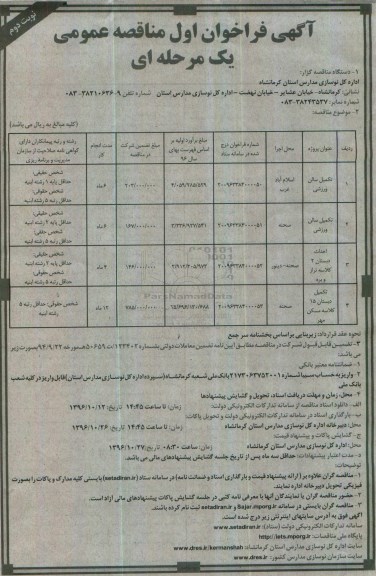 نوبت دوم
آگهی فراخوان اول مناقصه عمومی
یک مرحله ای
۱- دستگاه مناقصه گزار:
اداره کل نوسازی مدارس استان کرمانشاه
نشانی: کرمانشاه- خیابان عشایر – خیابان نهضت – اداره کل نوسازی مدارس استان شماره تلفن ۹-۳۸۲۱۰۶۳۶-۰۸۳
شماره نمابر: ۳۸۲۴۳۵۳۷-۰۸۳
۲- موضوع مناقصه:
(کلیه مبالغ به ریال می باشند)
ردیف عنوان پروژه محل اجرا شماره فراخوان درج شده در سامانه ستاد مبلغ برآورد اولیه بر اساس فهرست بهای سال ۹۶ مبلغ تضمین شرکت در مناقصه مدت انجام کار رشته و رتبه پیمانکاران دارای گواهی نامه صلاحیت از سازمان مدیریت و برنامه ریزی
۱ تکمیل سالن ورزشی اسلام آباد غرب ۶ماه شخص حقیقی: حداقل پایه ۱ رشته ابنیه شخص حقوقی: حداقل رتبه ۵ رشته ابنیه
۲ تکمیل سالن ورزشی صحنه ۶ماه شخص حقیقی: حداقل پایه ۲ رشته ابنیه شخص حقوقی: حداقل رتبه ۵ رشته ابنیه
۳ احداث دبستان ۲ کلاسه تراز ویژه صحنه - دینور شخص حقیقی: حداقل پایه ۲ رشته ابنیه شخص حقوقی: حداقل رتبه ۵ رشته ابنیه
۴ تکمیل دبستان ۱۵ کلاسه مسکن مهر ۱۲ ماه شخص حقوقی: حداقل رتبه ۵ رشته ابنیه
نحوه عقد قرارداد: زیربنایی براساس بخشنامه سر جمع
۳- تضمین قابل قبول شرکت در مناقصه مطابق آیین نامه تضمین معاملات دولتی بشماره ۱۲۳۴۰۲/ت۵۰۶۵۹هـ مورخ ۹۴/۹/۲۲ بصورت زیر می باشد:
۱- ضمانتنامه معتبر بانکی
۲- واریز به حساب سیبا شماره ۲۱۷۳۰۶۳۷۵۲۰۰۱ بانک ملی شعبه کرمانشاه (سپرده اداره کل نوسازی مدارس استان) قابل واریز در کلیه شعب بانک ملی
۴- محل، زمان و مهلت دریافت اسناد، تحویل و گشایش پیشنهادها
الف- دانلود اسناد مناقصه از سامانه تدارکات الکترونیکی دولت: زمان: تا ساعت ۱۴:۴۵ تاریخ: ۱۳۹۶/۱۰/۱۲
ب- بارگذاری اسناد در سامانه تدارکات الکترونیکی دولت و تحویل پاکات:
محل: دبیرخانه اداره کل نوسازی مدارس استان کرمانشاه زمان: تا ساعت ۱۴:۴۵ تاریخ: ۱۳۹۶/۱۰/۲۶
ج- گشایش پاکات و پیشنهاد قیمت:
محل: اداره کل نوسازی مدارس استان کرمانشاه زمان: ۰۸:۳۰ تاریخ: ۱۳۹۶/۱۰/۲۷
۵- مدت اعتبار پیشنهادات: حداقل سه ماه پس از تاریخ جلسه گشایش پیشنهادهای مالی می باشد.
توضیحات:
۱- مناقصه گران علاوه بر (ارائه پیشنهاد قیمت و بارگذاری اسناد و ضمانت نامه) در سامانه ستاد (setadiran.ir) بایستی کلیه مدارک و پاکات را بصورت فیزیکی تحویل دبیرخانه اداره نمایند.
۲- حضور مناقصه گران یا نمایندگان آنها با معرفی نامه کتبی در جلسه گشایش پاکات پیشنهادهای مالی آزاد است.
۳- مناقصه گران بایستی در سامانه Sajar.mporg.ir و setadiran.ir ثبت نام کرده باشند.
آگهی فوق به آدرس سایتهای اینترنتی زیر درج شده است.
سامانه تدارکات الکترونیکی دولت (ستاد): www.setadiran.ir
پایگاه ملی مناقصات: http://iets.mporg.ir
سایت اداره کل نوسازی مدارس استان کرمانشاه: www.dres.ir/kermanshah
سایت سازمان نوسازی مدارس کشور: www.dres.ir
ParsNamadData